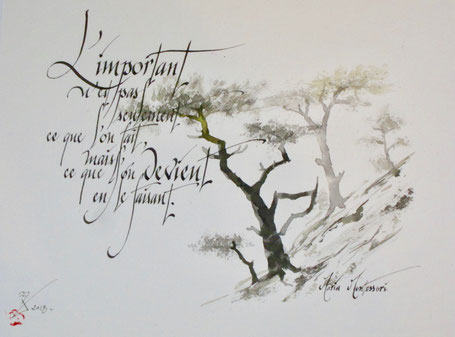 L'important
n'est pas
seulement
ce que l'on fait,
mais
ce que l'on devient
en le faisant.
Maria Montessori
2018.